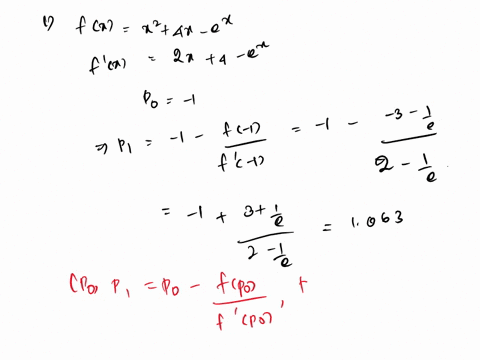 1) f(x) = x²+4x-eˣ
f'(x) = 2x+4-eˣ
P₀ = -1
⇒ P₁ = -1 - f(-1)/f'(-1) = -1 - (-3 - 1/e)/(2 - 1/e)
= -1 + (3+1/e)/(2-1/e) = 1.063
(P₀, P₁ = P₀ - f(P₀)/f'(P₀), t